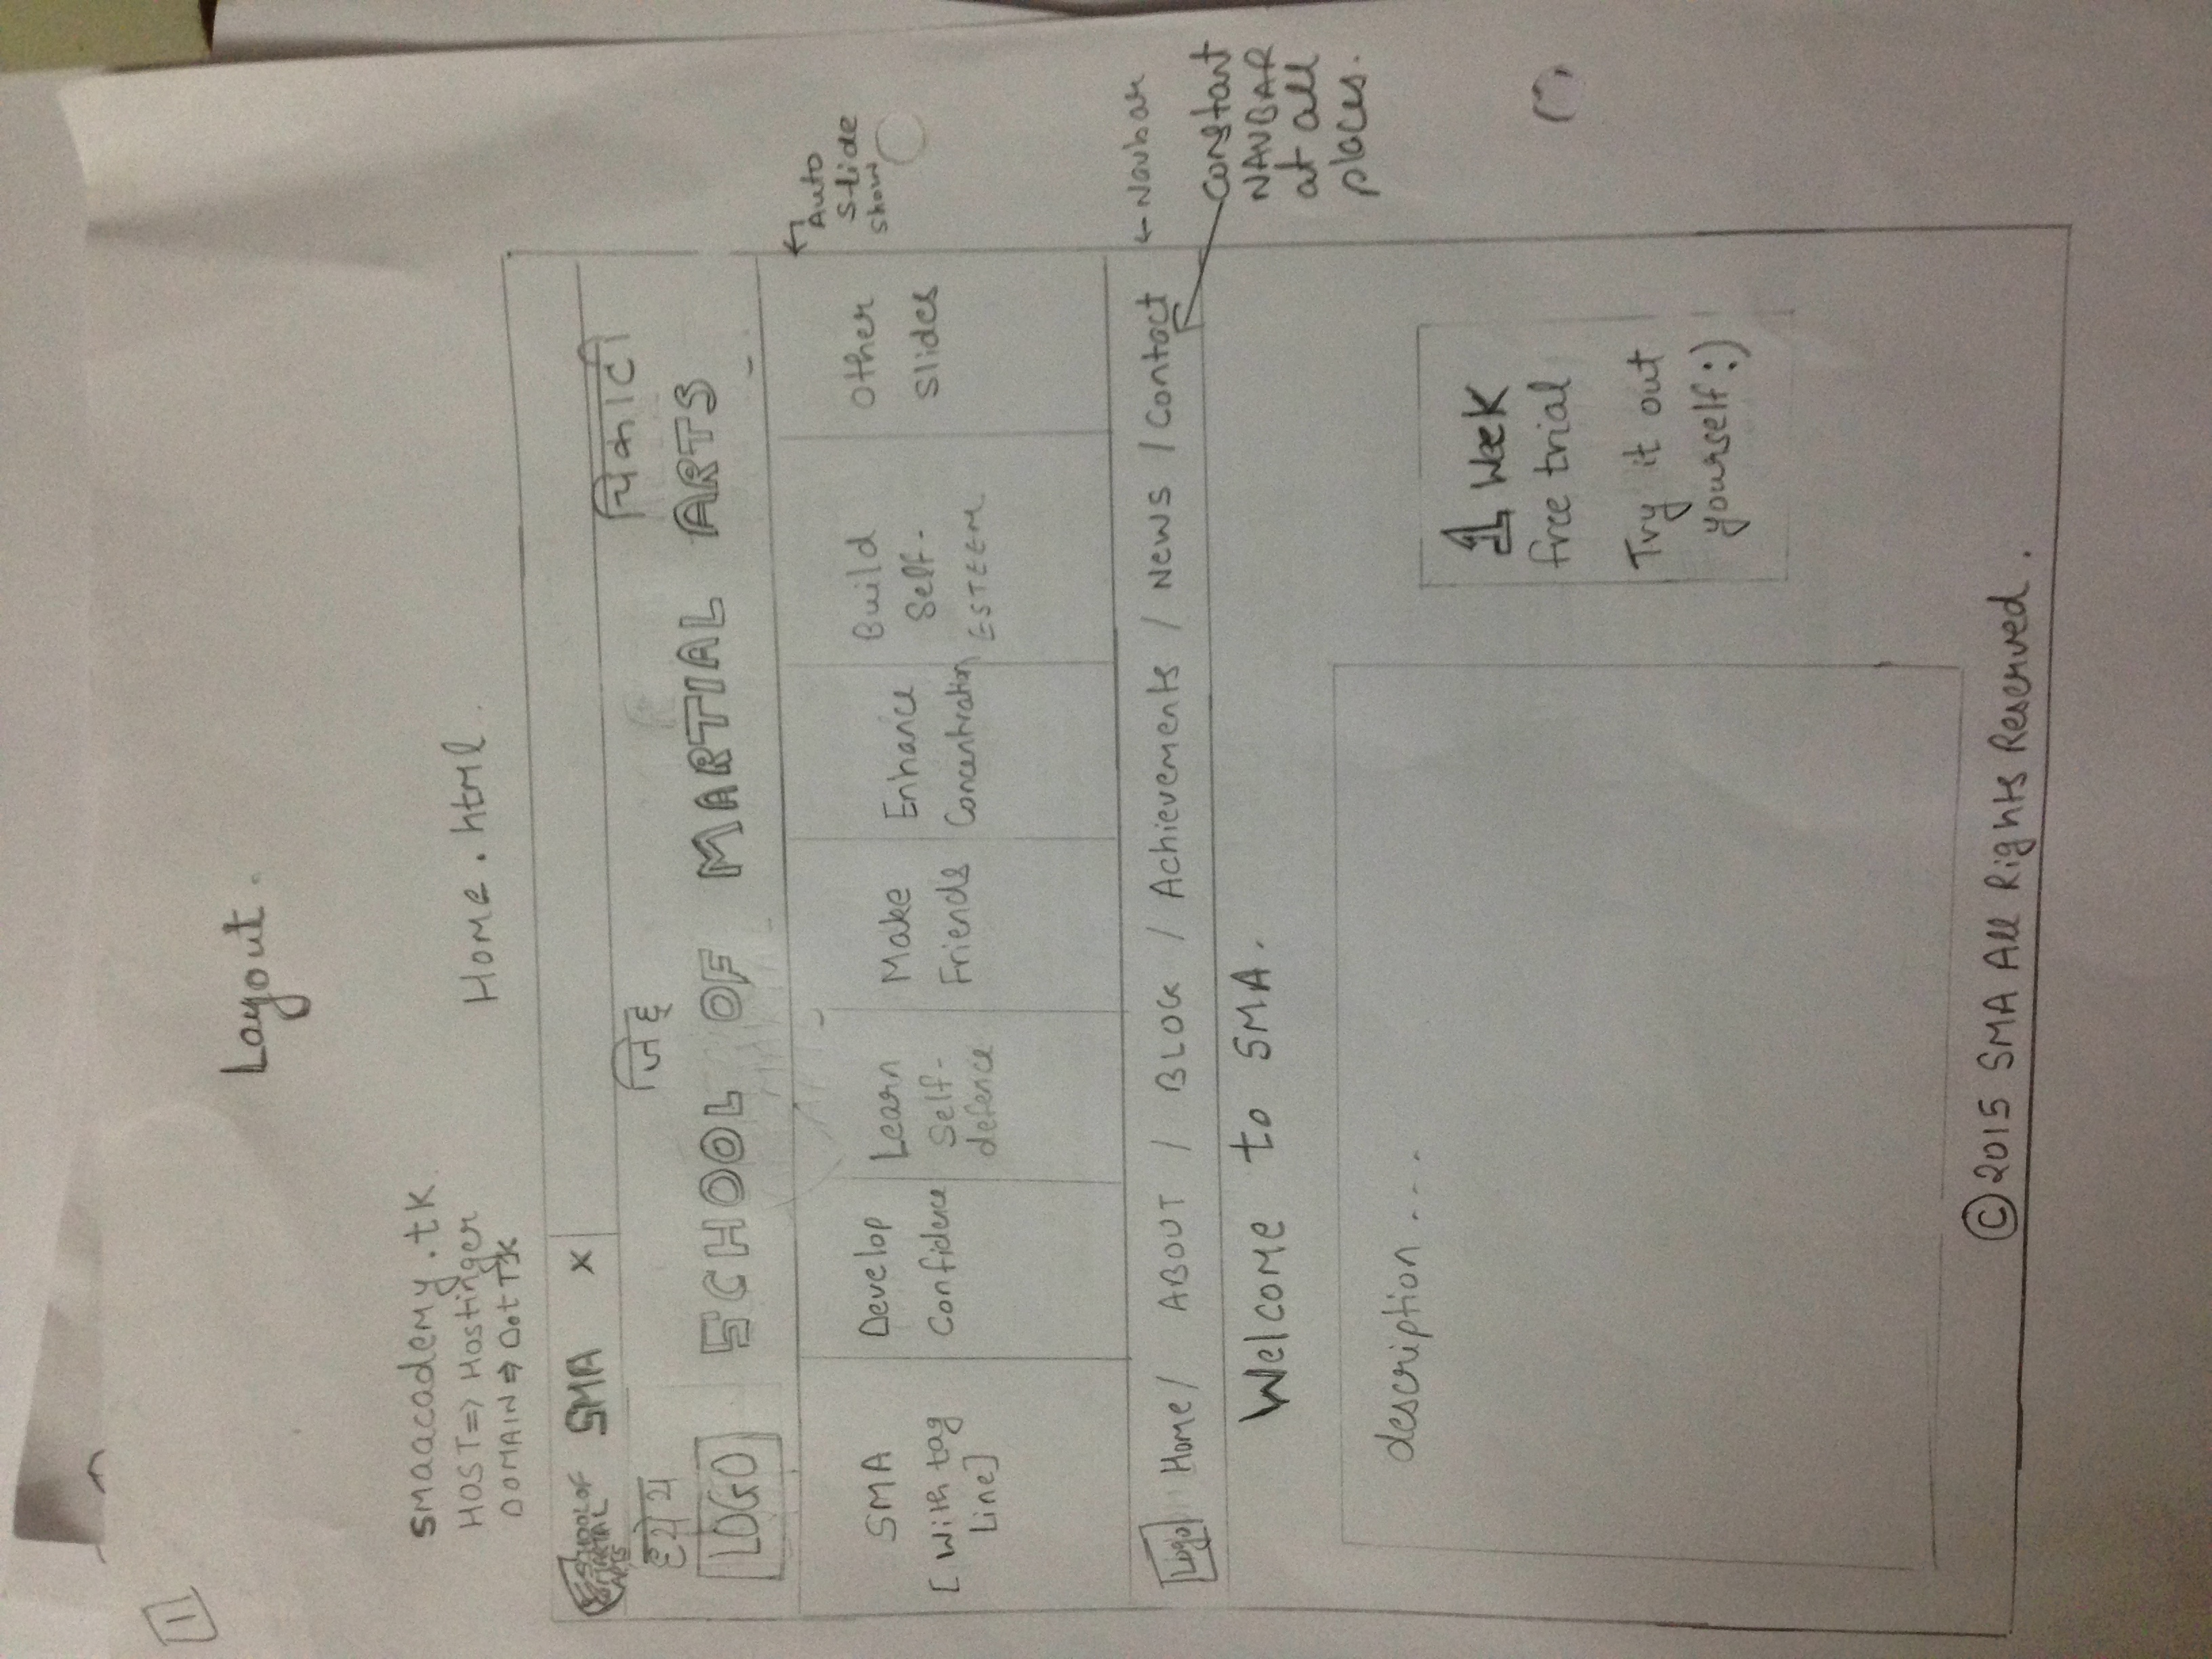 1
Layout.
smaacademy.tk
HOST=> Hostinger
DOMAIN => Dot TK
Home.html
SCHOOL OF
MARTIAL
ARTS
SMA x
ध्येय जिद्द चिकाटी
LOGO SCHOOL OF MARTIAL ARTS
SMA
[With tag
Line]
Develop
Confidence
Learn
Self-
defence
Make
Friends
Enhance
Concentration
Build
Self-
ESTEEM
Other
Slides
Auto
Slide
show
Logo Home / ABOUT / BLOG / Achievements / NEWS / Contact
←Navbar
Constant
NAVBAR
at all
places.
Welcome to SMA.
description ...
1 Week
free trial
Try it out
yourself :)
©2015 SMA All Rights Reserved.